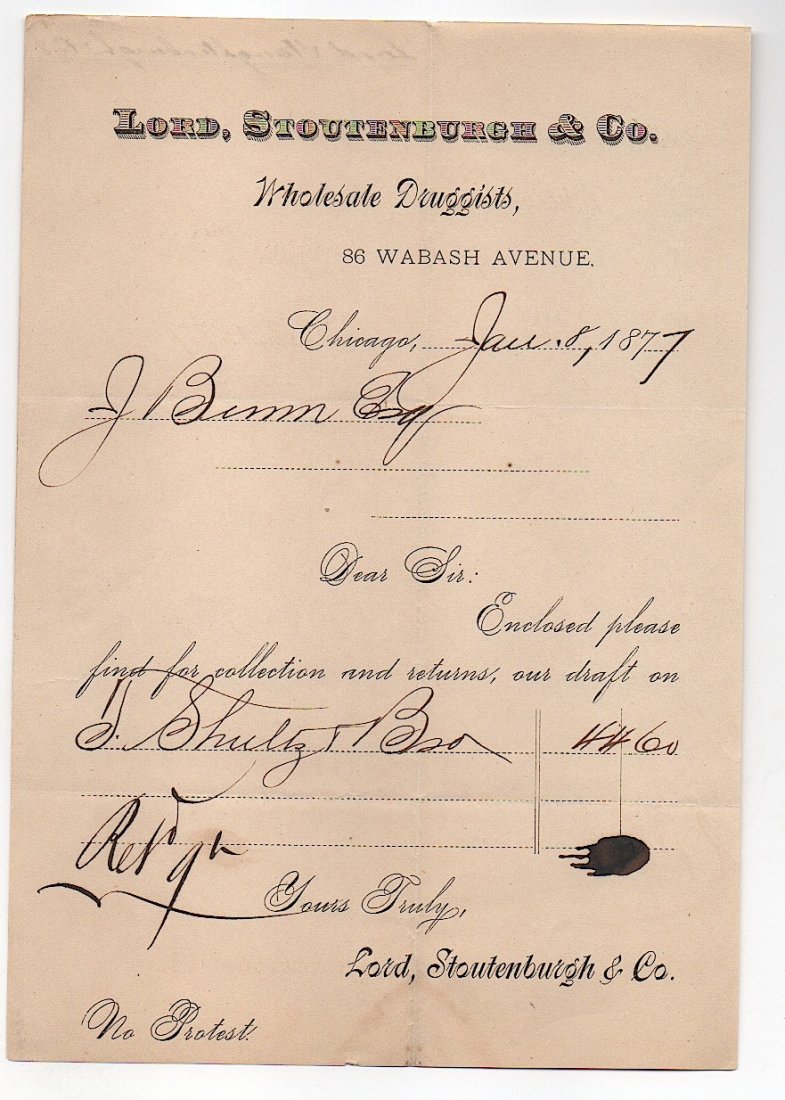 LORD, STOUTENBURGH & CO.
Wholesale Druggists,
86 WABASH AVENUE.
Chicago, Jan. 8, 1877
J Bunn Esq
Dear Sir:
Enclosed please
find for collection and returns, our draft on
Shultz & Bro 44 60
Ret 9th
Yours Truly,
Lord, Stoutenburgh & Co.
No Protest.